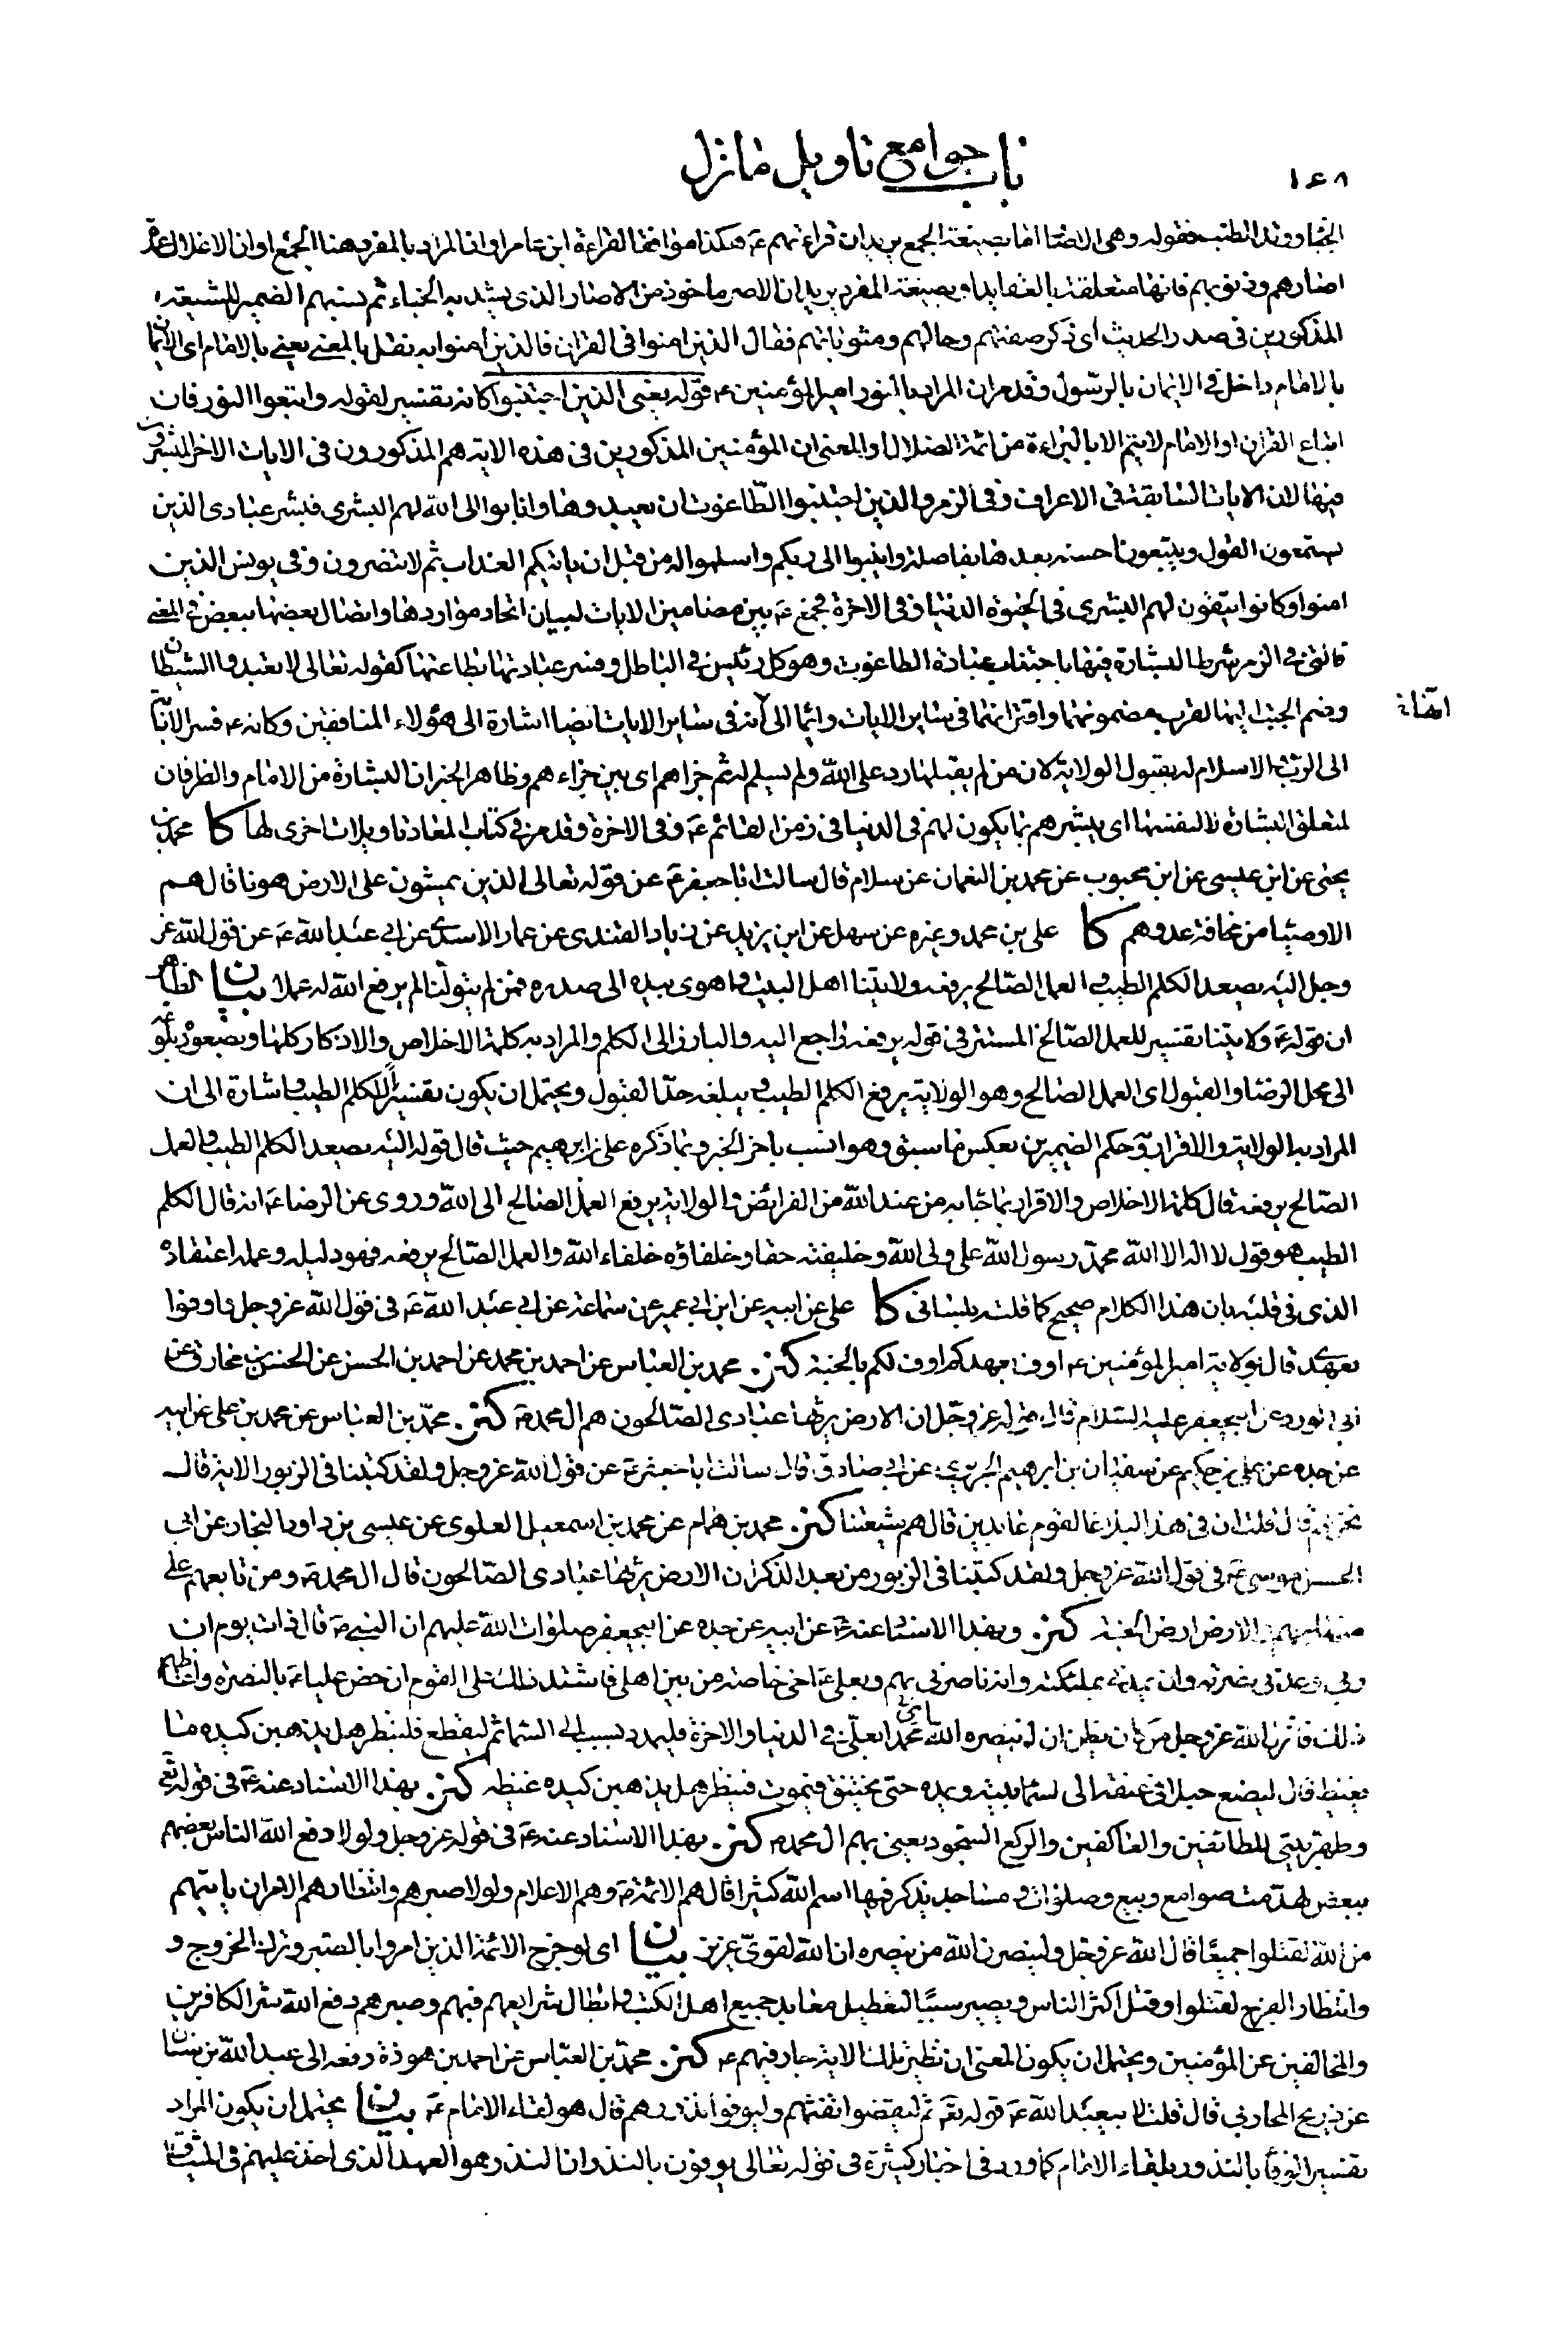 ١٤٨
باب جوامع تاويل ما نزل
الخباء وتد الطنب فقوله وهي الاصار اما بصيغة الجمع يريد ان قراءتهم ع هكذا موافقا لقراءة ابن عامر او ان المراد بالمفرد هنا الجمع او ان الاغلال
اصارهم وذنوبهم فانها متعلقة بالعقايد او بصيغة المفرد يريد ان الاصر ماخوذ من الاصار الذي يشد به الخباء ثم نسبهم الضمير للشيعة
المذكورين في صدر الحديث اي ذكر صفتهم وحالهم ومثوباتهم فقال الذين امنوا في القران فالذين امنوا به نقل بالمعنى يعني بالامام اي الايمان
بالامام داخل في الايمان بالرسول وقد مر ان المراد بالنور امير المؤمنين ع قوله يعني الذين اجتنبوا كانه تفسير لقوله واتبعوا النور فان
اتباع القران او الامام لا يتم الا بالبراءة من ائمة الضلال او المعنى ان المؤمنين المذكورين في هذه الاية هم المذكورون في الايات الاخر المبشرون
فيها لان الايات السابقة في الاعراف وفي الزمر والذين اجتنبوا الطاغوت ان يعبدوها وانابوا الى الله لهم البشرى فبشر عبادي الذين
يستمعون القول ويتبعون احسنه بعدها بفاصلة وانيبوا الى ربكم واسلموا له من قبل ان ياتيكم العذاب ثم لا تنصرون وفي يونس الذين
امنوا وكانوا يتقون لهم البشرى في الحيوة الدنيا وفي الاخرة فجمع ع بين مضامين الايات لبيان اتحاد مواردها واتصال بعضها ببعض في المعنى
فالتي في الزمر شرط البشارة فيها باجتناب عبادة الطاغوت وهو كل رئيس في الباطل وفسر عبادتها بطاعتها كقوله تعالى لا تعبدوا الشيطان
وضم الجبت اليها لقرب مضمونهما واقترانهما في ساير الايات وايماء الى انه في ساير الايات ايضا اشارة الى هؤلاء المنافقين وكانه ع فسر الانابة
الى الرب والاسلام له بقبول الولاية لان من لم يقبلها رد على الله ولم يسلم له ثم جزاهم اي بين جزاءهم وظاهر الخبر ان البشارة من الامام والظرفان
لمتعلق البشارة لا لنفسها اي يبشرهم بما يكون لهم في الدنيا في زمن القائم ع وفي الاخرة وقد مر في كتاب المعاد تاويلات اخرى لها كا محمد بن
يحيى عن ابن عيسى عن ابن محبوب عن محمد بن النعمان عن سلام قال سالت ابا جعفر ع عن قوله تعالى الذين يمشون على الارض هونا قال هم
الاوصيا من مخافة عدوهم كا علي بن محمد وغيره عن سهل عن ابن يزيد عن زياد القندي عن عمار الاسدي عن ابي عبد الله ع عن قول الله عز
وجل اليه يصعد الكلم الطيب والعمل الصالح يرفعه ولايتنا اهل البيت واهوى بيده الى صدره فمن لم يتولنا لم يرفع الله له عملا بيان الظاهر
ان قوله ع ولايتنا تفسير للعمل الصالح المستتر في قوله يرفعه راجع اليه والبارز الى الكلم والمراد به كلمة الاخلاص والاذكار كلها وبصعوده بلوغه
الى محل الرضا والقبول اي العمل الصالح وهو الولاية يرفع الكلم الطيب ويبلغه حد القبول ويحتمل ان يكون تفسيرا للكلم الطيب واشارة الى ان
المراد به الولاية والاقرار به وحكم الضميرين بعكس ما سبق وهو انسب باخر الخبر وبما ذكره علي بن ابرهيم حيث قال قوله اليه يصعد الكلم الطيب والعمل
الصالح يرفعه قال كلمة الاخلاص والاقرار بما جا به من عند الله من الفرائض والولاية يرفع العمل الصالح الى الله وروي عن الرضا ع انه قال الكلم
الطيب هو قول لا اله الا الله محمد رسول الله علي ولي الله وخليفته حقا وخلفاؤه خلفاء الله والعمل الصالح يرفعه فهو دليله وعمله اعتقاده
الذي في قلبه بان هذا الكلام صحيح كما قلته بلساني كا علي عن ابيه عن ابن ابي عمير عن سماعة عن ابي عبد الله ع في قول الله عز وجل واوفوا
بعهدي قال بولاية امير المؤمنين ع اوف بعهدكم اوف لكم بالجنة كنز محمد بن العباس عن احمد بن محمد عن احمد بن الحسن عن الحسين بن مخارق عن
ابي الورد عن ابي جعفر عليه السلام قال قوله عز وجل ان الارض يرثها عبادي الصالحون هم ال محمد ص كنز محمد بن العباس عن محمد بن علي عن ابيه
عن جده عن علي بن حكيم عن سفيان بن ابرهيم الجريري عن ابي صادق قال سالت ابا جعفر ع عن قول الله عز وجل ولقد كتبنا في الزبور الاية قال
نحن هم قال قلت ان في هذا لبلاغا لقوم عابدين قال هم شيعتنا كنز محمد بن همام عن محمد بن اسمعيل العلوي عن عيسى بن داود النجار عن ابي
الحسن موسى ع في قول الله عز وجل ولقد كتبنا في الزبور من بعد الذكر ان الارض يرثها عبادي الصالحون قال ال محمد ص ومن تابعهم على
منهاجهم والارض ارض الجنة كنز وبهذا الاسناد عنه ع عن ابيه عن جده عن ابي جعفر صلوات الله عليهم ان النبي ص قال ذات يوم ان
ربي وعدني نصرته وان يمدني بملئكته وانه ناصرني بهم وبعلي ع اخي خاصة من بين اهلي فاشتد ذلك على القوم ان خص عليا ع بالنصرة واغاظهم
ذلك فانزل الله عز وجل من كان يظن ان لن ينصره الله محمدا بعلي في الدنيا والاخرة فليمدد بسبب الى السماء ثم ليقطع فلينظر هل يذهبن كيده ما
يغيظ قال ليضع حبلا في عنقه الى سماء بيته ويمده حتى يختنق فيموت فينظر هل يذهبن كيده غيظه كنز بهذا الاسناد عنه ع في قوله تعالى
وطهر بيتي للطائفين والعاكفين والركع السجود يعني بهم ال محمد ص كنز بهذا الاسناد عنه ع في قوله عز وجل ولولا دفع الله الناس بعضهم
ببعض لهدمت صوامع وبيع وصلوات ومساجد يذكر فيها اسم الله كثيرا قال هم الائمة ع وهم الاعلام ولولا صبرهم وانتظارهم الامر ان ياتيهم
من الله لقتلوا جميعا قال الله عز وجل ولينصرن الله من ينصره ان الله لقوي عزيز بيان اي لو خرج الائمة الذين امروا بالصبر وترك الخروج و
وانتظار الفرج لقتلوا وقتل اكثر الناس ويصير سببا لتعطيل معابد جميع اهل الكتب وابطال شرايعهم فبهم وصبرهم دفع الله شر الكافرين
والمخالفين عن المؤمنين ويحتمل ان يكون المعنى ان نظير تلك الاية جار فيهم ع كنز محمد بن العباس عن احمد بن هوذة رفعه الى عبد الله بن سنان
عن ذريح المحاربي قال قلت لابي عبد الله ع قوله تع ثم ليقضوا تفثهم وليوفوا نذورهم قال هو لقاء الامام ع بيان يحتمل ان يكون المراد
تفسير الوفاء بالنذور بلقاء الامام كما ورد في اخبار كثيرة في قوله تعالى يوفون بالنذر ان النذر هو العهد الذي اخذ عليهم في الميثاق